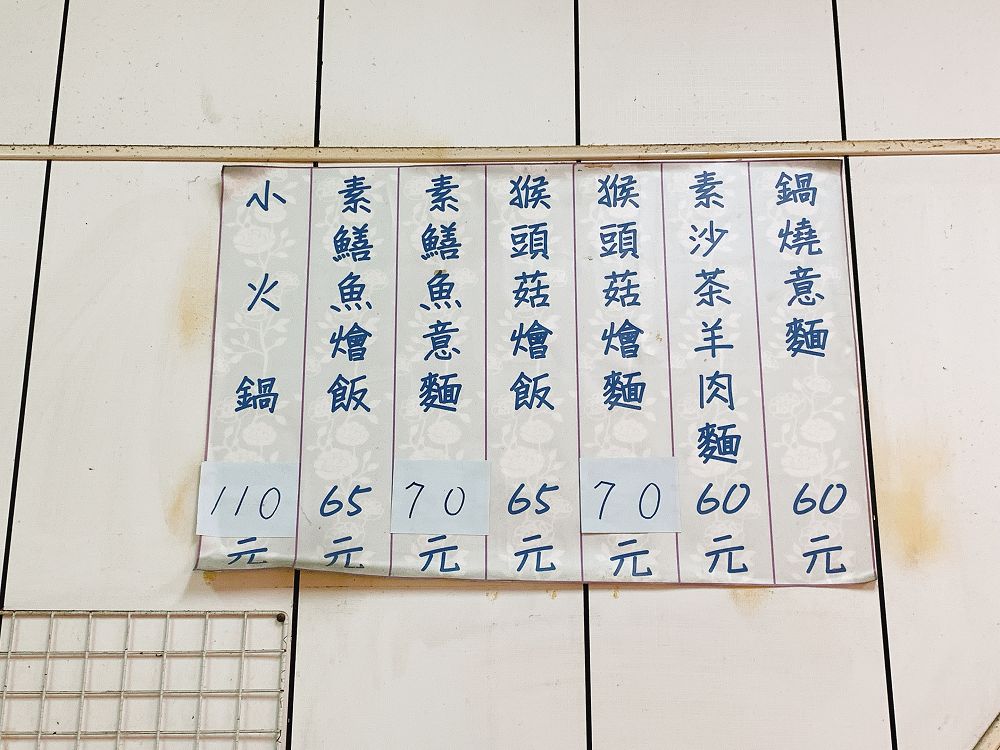 鍋燒意麵60元
素沙茶羊肉麵60元
猴頭菇燴麵70元
猴頭菇燴飯65元
素鱔魚意麵70元
素鱔魚燴飯65元
小火鍋110元